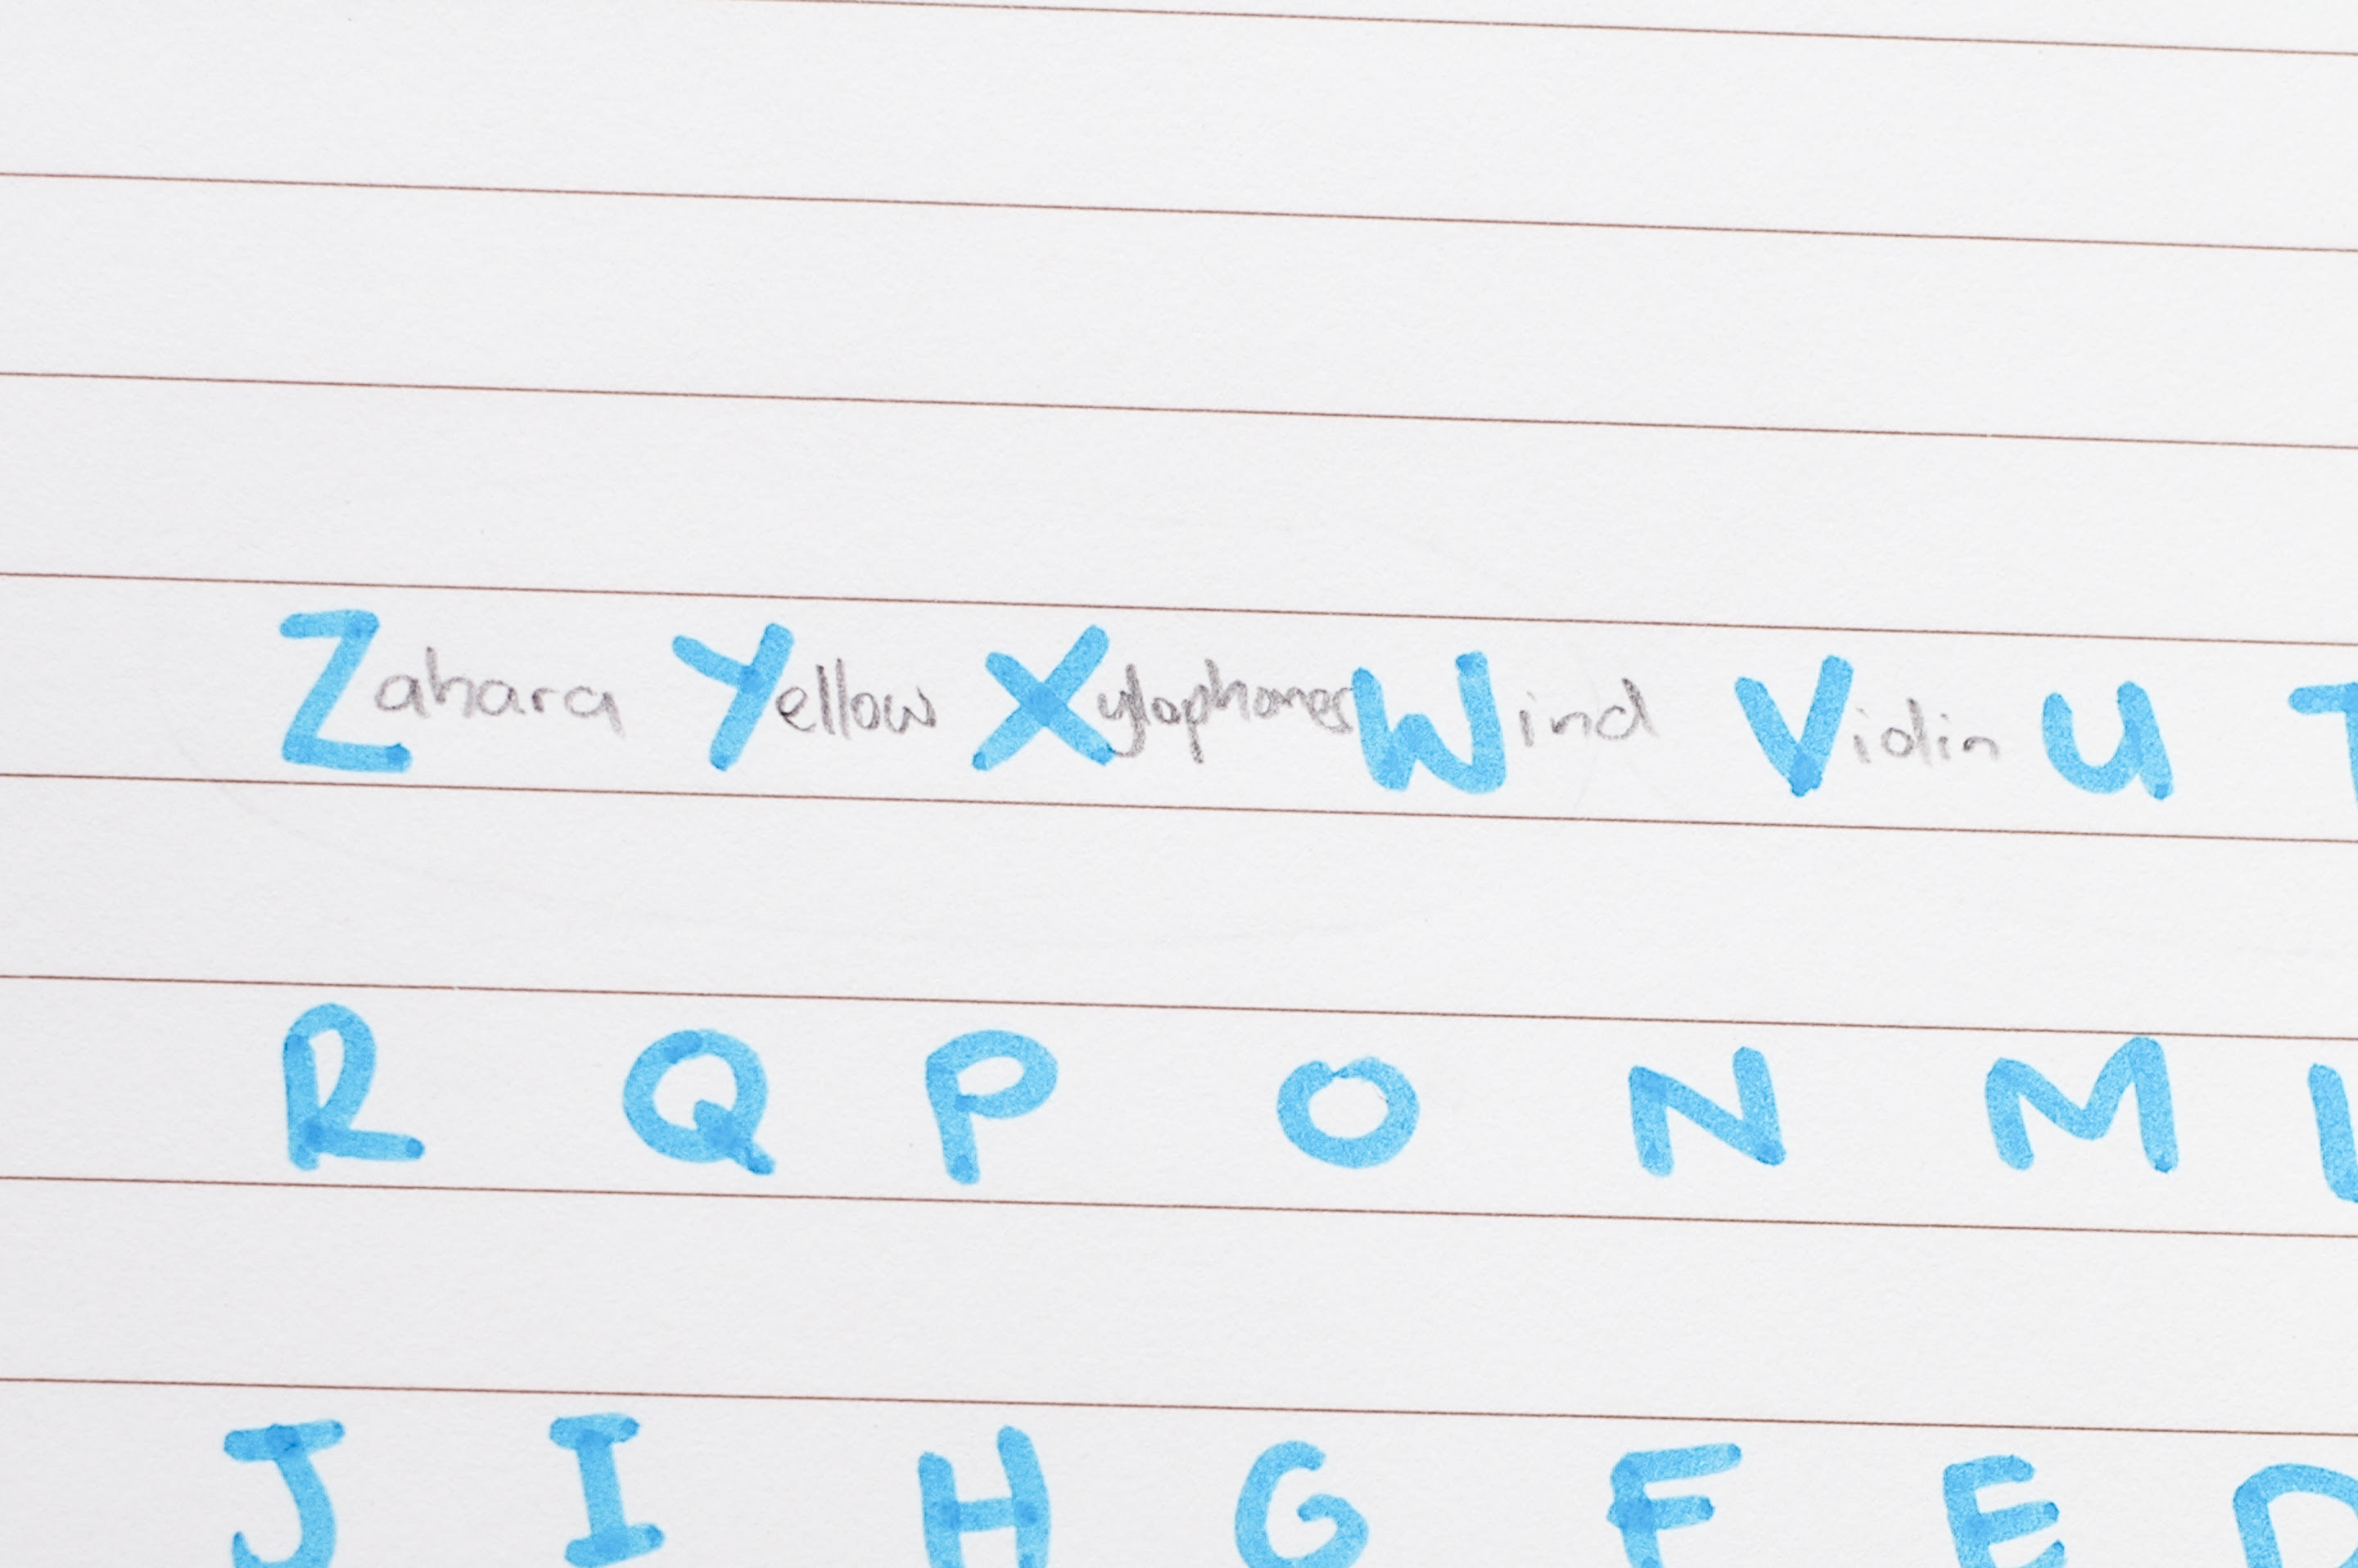 Zahara Yellow Xylophones Wind Violin U T
R Q P O N M L
J I H G F E D